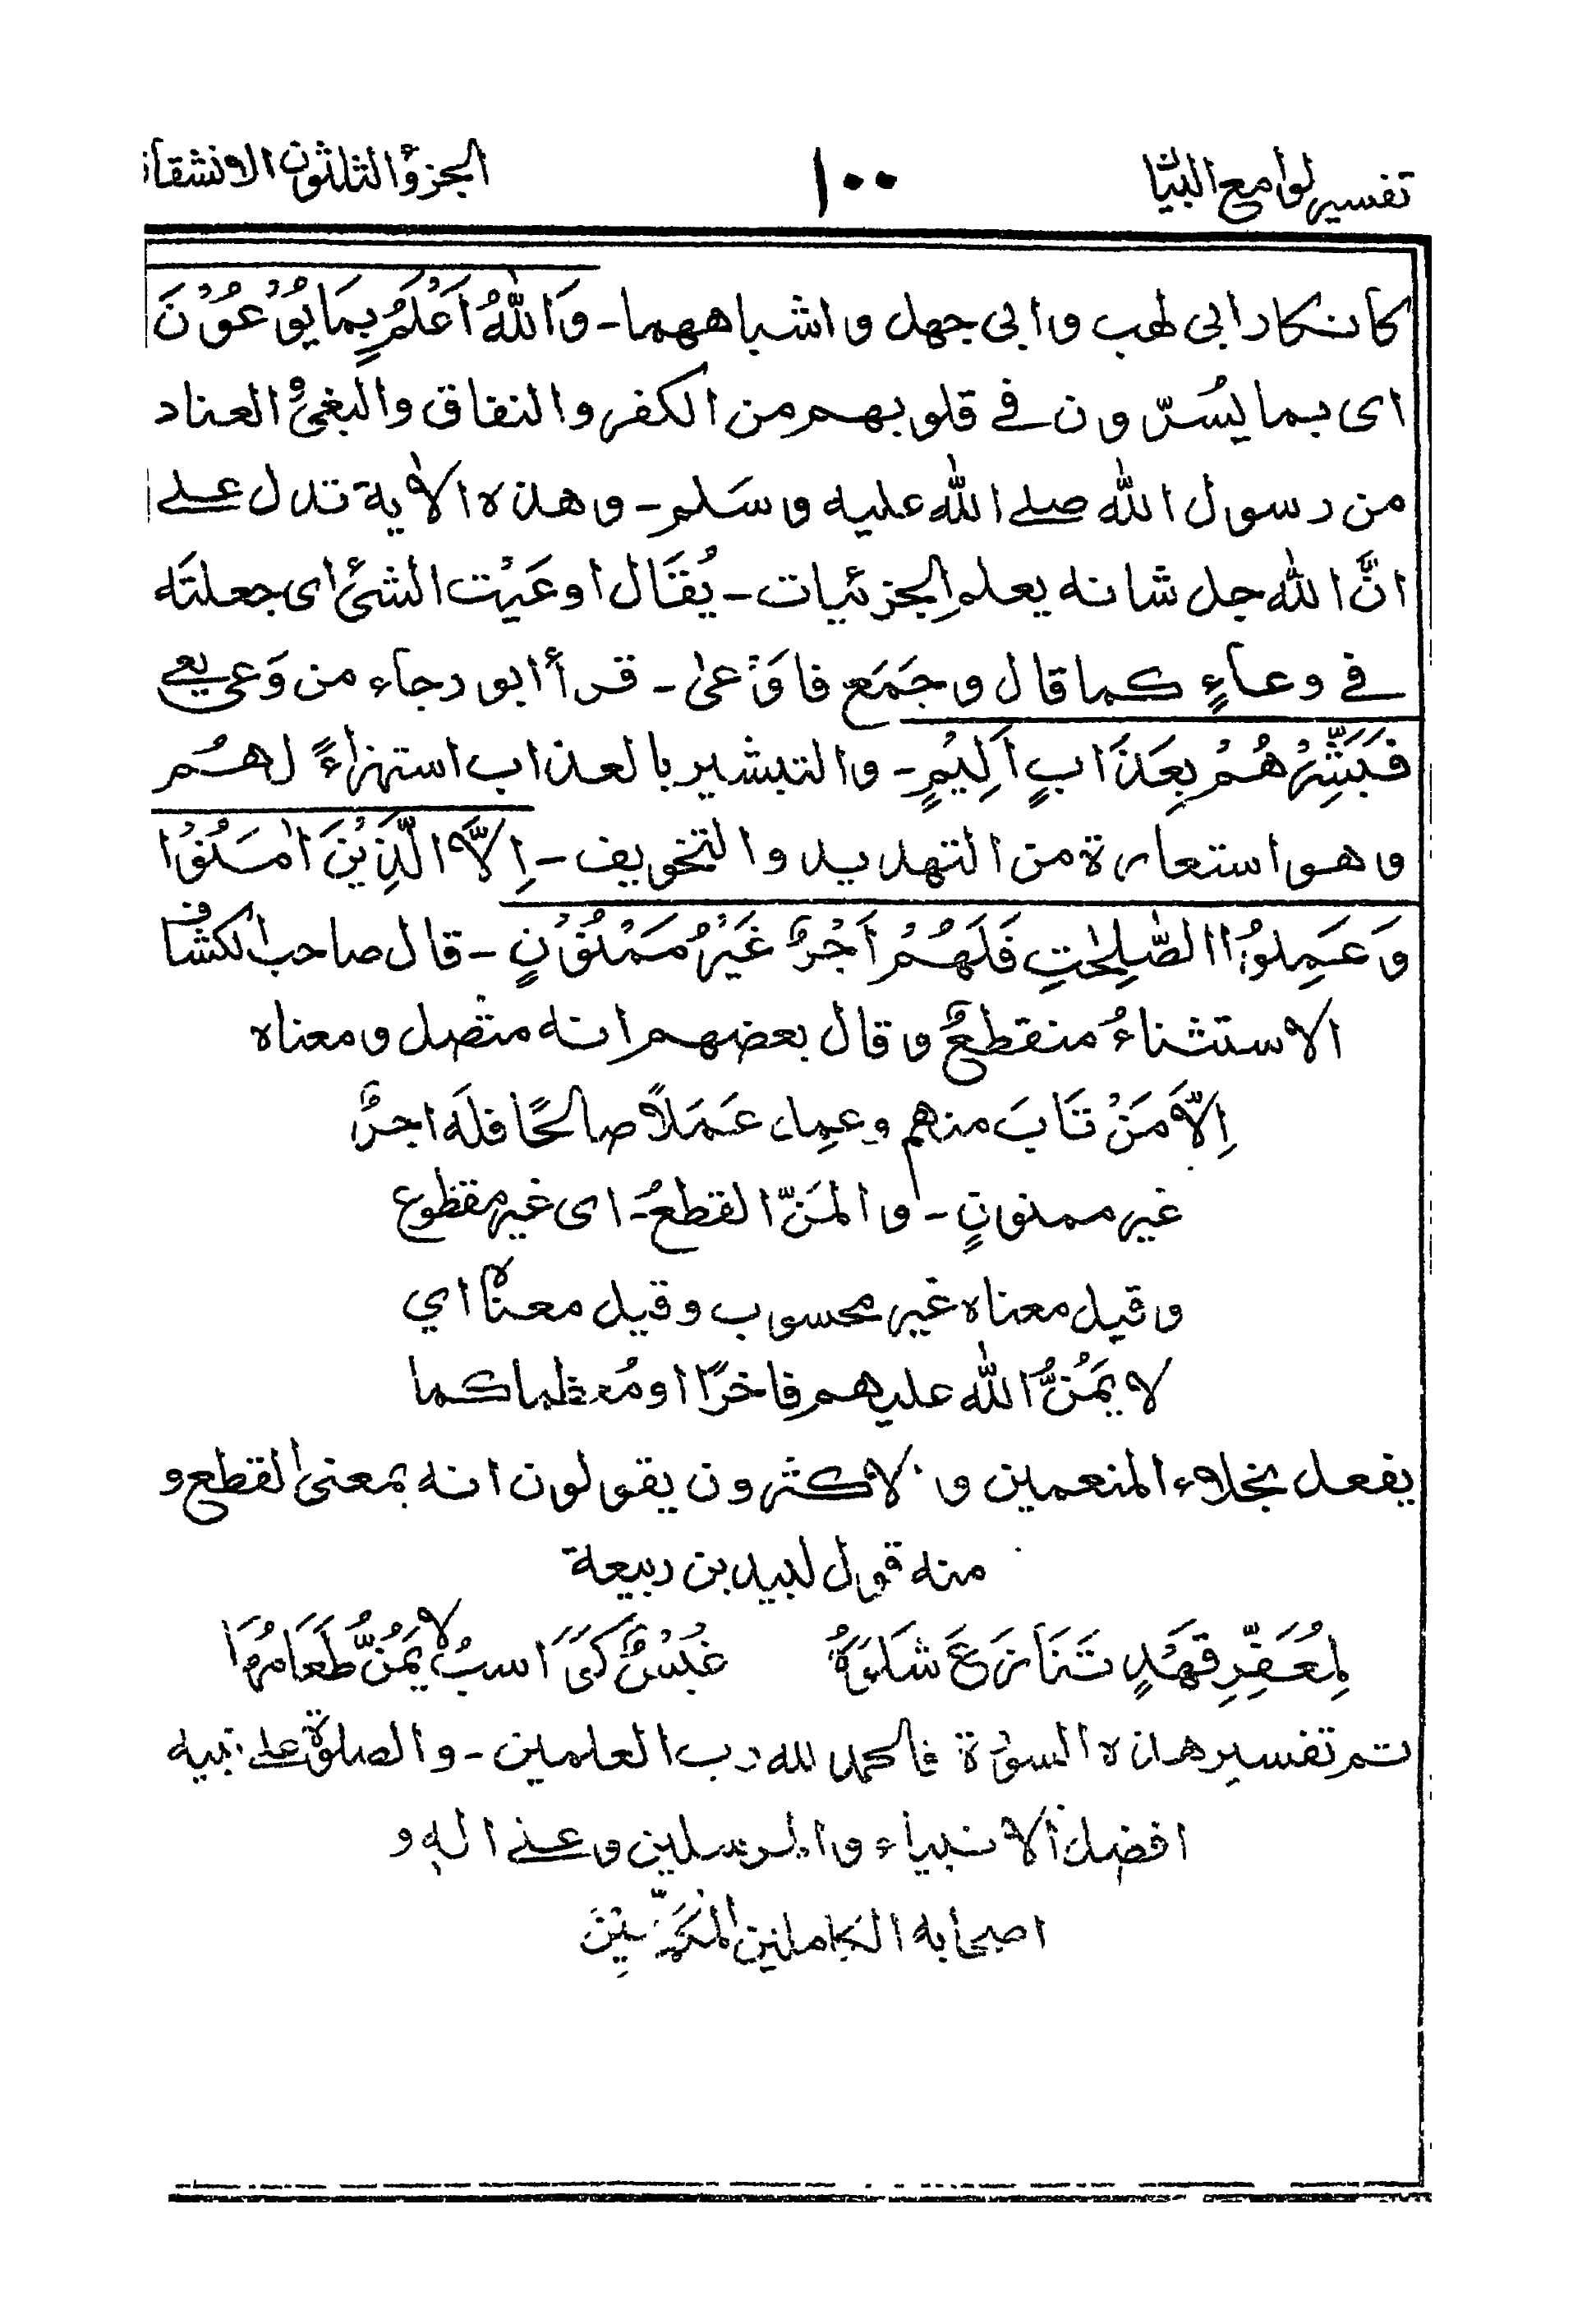 تفسير لوامع البيان ١٠٠ الجزؤ الثلثون الانشقاق
كانكار ابى لهب وابى جهل واشباههما - وَاللّٰهُ اَعْلَمُ بِمَا يُوْعُوْنَ
اى بما يُسرّون فے قلوبهم من الكفر والنفاق والبغىْ العناد
من رسول الله صلے الله عليه وسَلم - وهذه الاٰية تدل علے
انَّ اللّٰه جل شانه يعلم الجزئيات - يُقَال اوعَيْت الشئ اى جعلتَه
فے وعاءٍ كما قال وجَمَع فاَوْعىٰ - قرأ ابو رجاء من وَعى يعى
فَبَشِّرْهُمْ بِعَذَابٍ اَلِيْمٍ - والتبشير بالعذاب استهزاءً لهُم
وهو استعارة من التهديد والتخويف - اِلَّا الَّذِيْنَ اٰمَنُوْا
وَعَمِلُوا الصّٰلِحٰتِ فَلَهُمْ اَجْرٌ غَيْرُ مَمْنُوْنٍ - قال صاحب الكشاف
الاستثناءُ منقطعٌ وقال بعضهم انه متصل ومعناه
اِلّاَ مَنْ تَابَ منهم وعمِل عَمَلاً صالحًا فلَه اجرٌ
غير ممنونٍ - والمَنّ القطعُ - اى غير مقطوع
وقيل معناه غير محسوب وقيل معناہ اي
لا يَمُنُّ اللّٰه عليهم فاخرًا او مُعظما كما
يفعل بخلاء المنعمين والاكثرون يقولون انه بمعنى القطع و
منه قول لبيد بن ربيعة
لِمُعَفَّرٍ قَهْدٍ تَنَازَعَ شَلْوَهُ غُبْسٌ كَوَاسبُ لا يُمَنُّ طَعَامُهَا
تم تفسير هذه السورة فالحمد لله رب العلمين - والصلوة علے نبيه
افضل الانبياء والمرسلين وعلے اله و
اصحابه الكاملين المكمّلِين